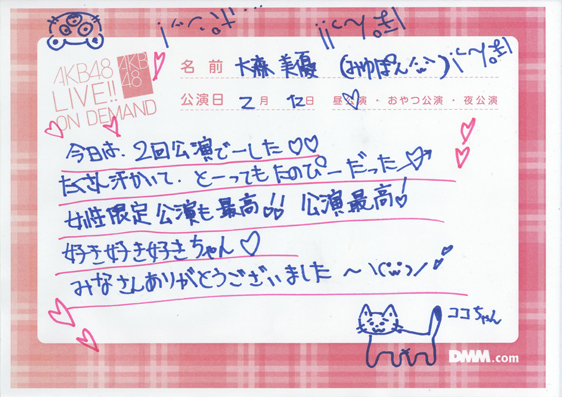 AKB48
LIVE!!
ON DEMAND
AKB
48
名前 大森美優 (みゆぽん
公演日 2月12日 昼公演・おやつ公演・夜公演
今日は、2回公演でーした♡♡
たくさん汗かいて、とーってもたのぴーだった
女性限定公演も最高!! 公演最高!
好き好き好きちゃん♡
みなさんありがとうございました〜
ココちゃん
DMM.com